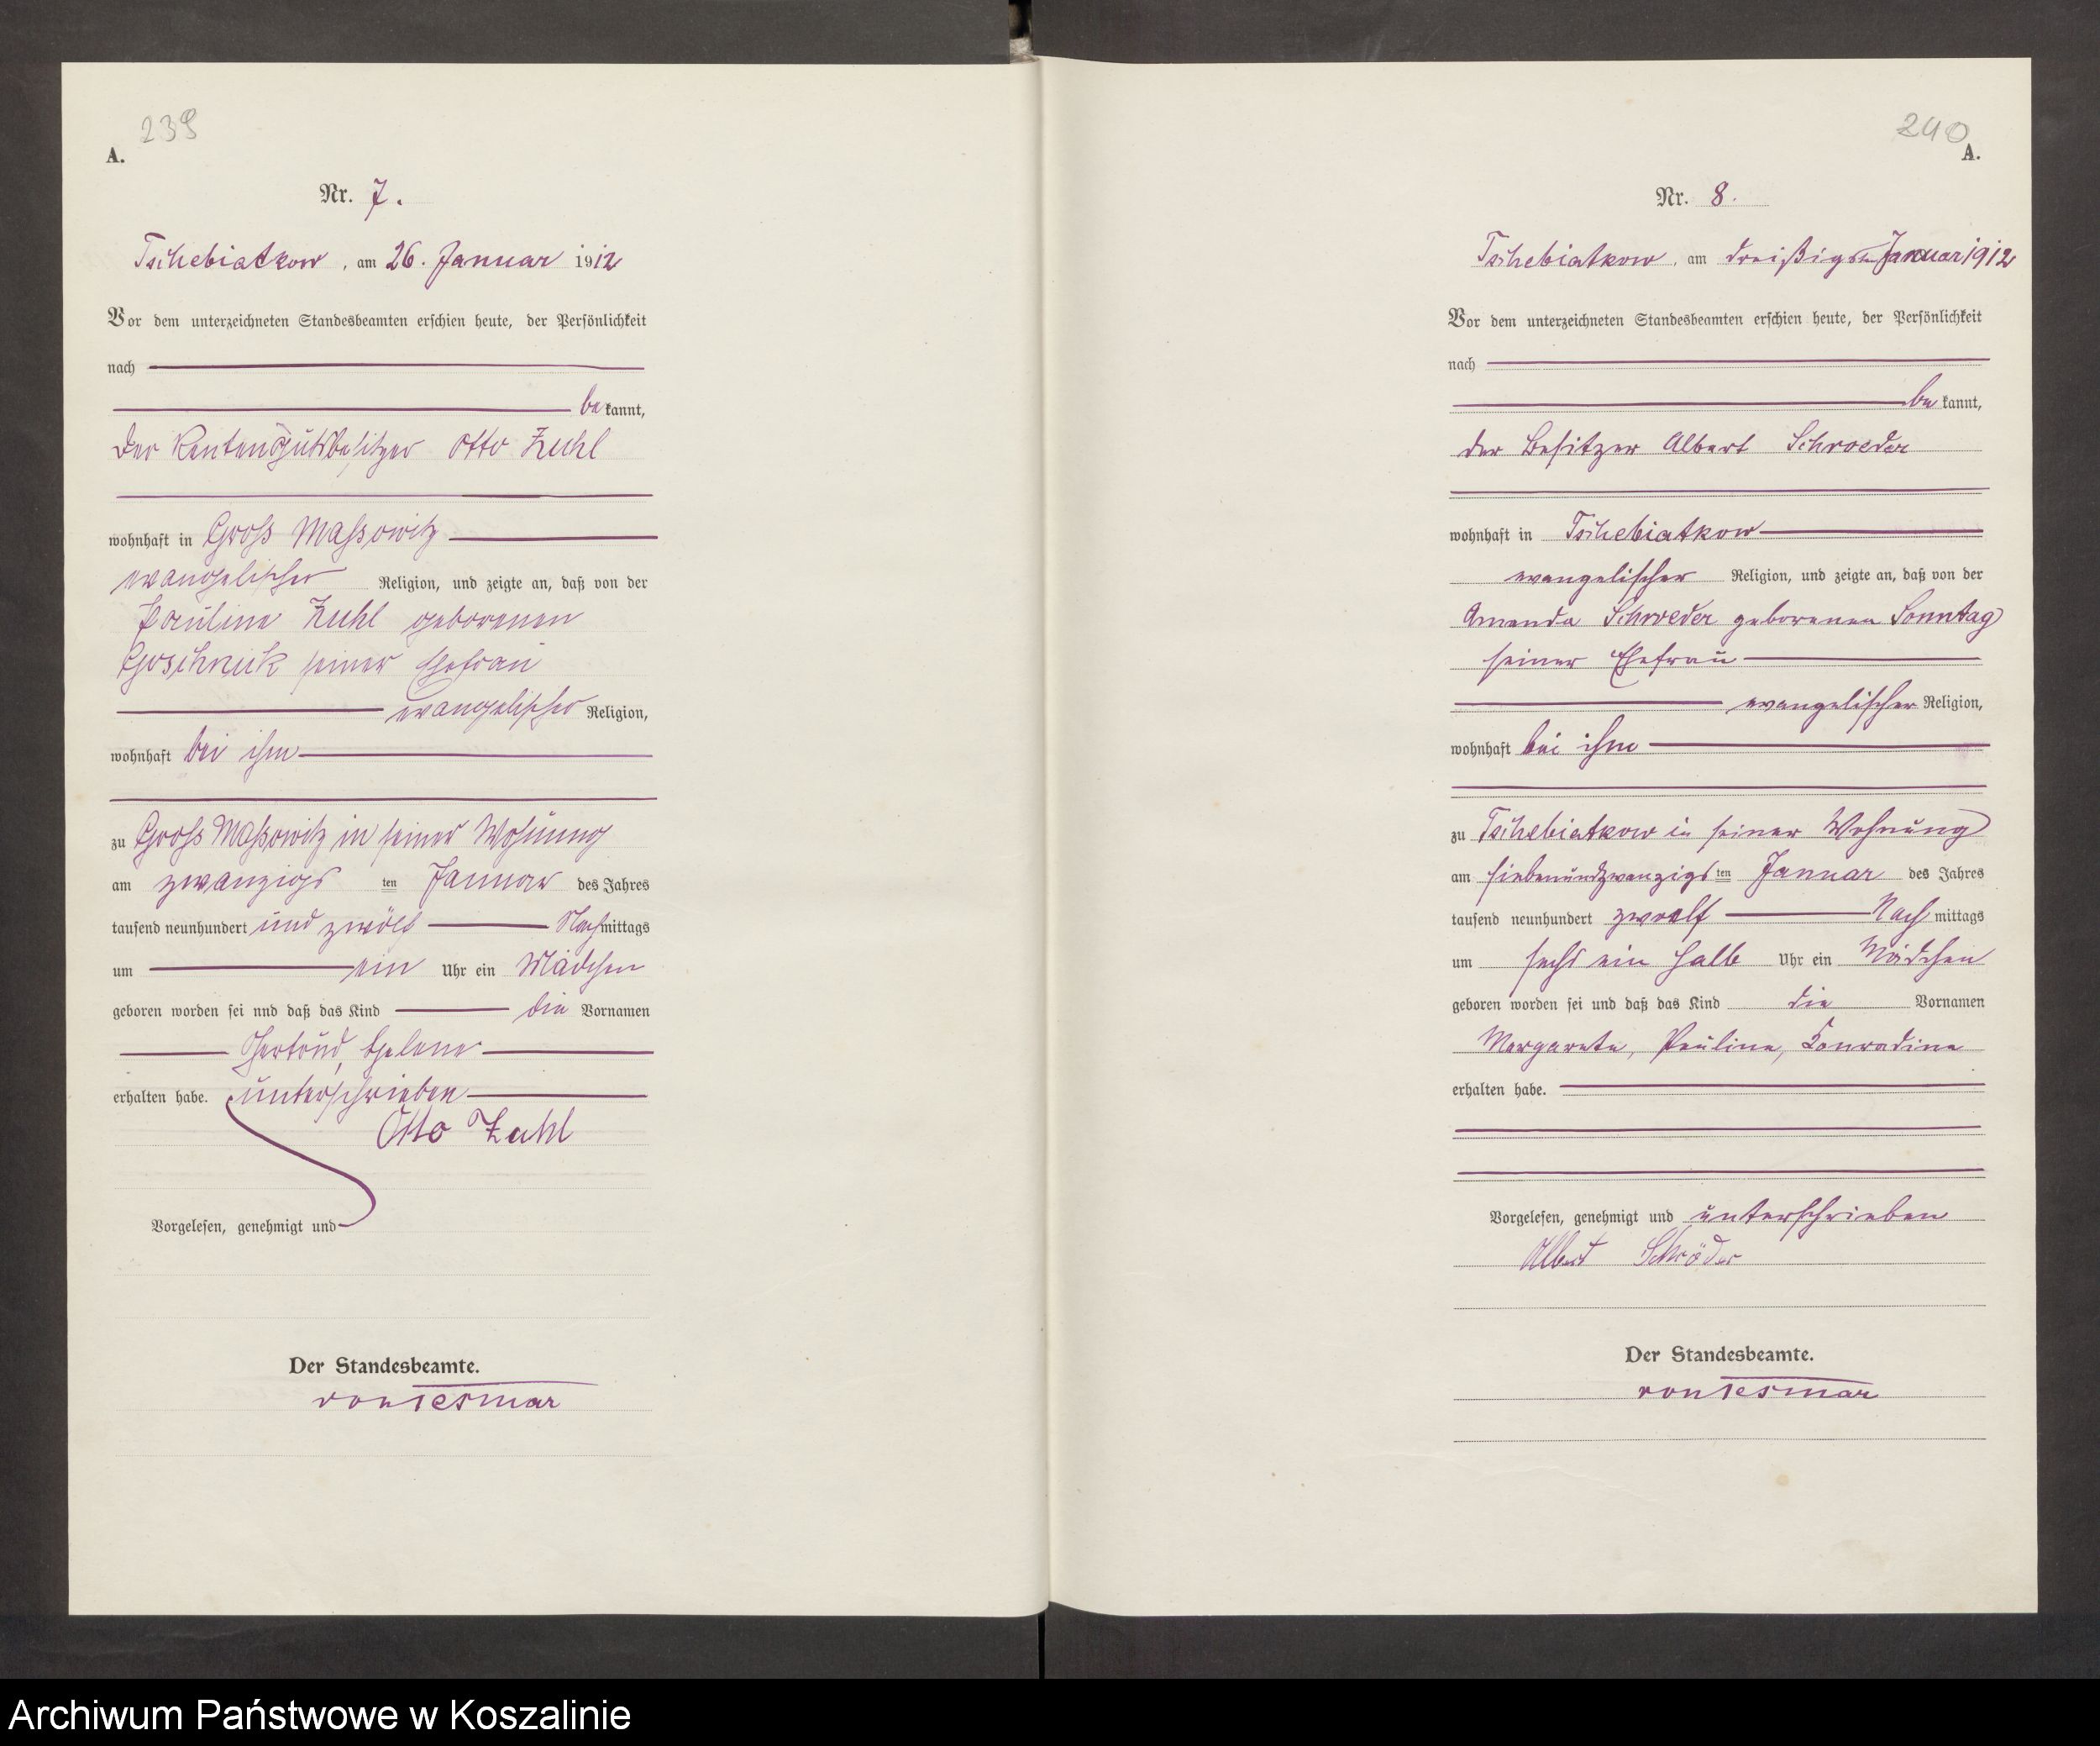 239
A.
Nr. 7.
Tschebiatkow, am 26. Januar 1912
Vor dem unterzeichneten Standesbeamten erschien heute, der Persönlichkeit
nach
bekannt,
der Rentengutsbesitzer Otto Zuhl
wohnhaft in Gross Massowitz
evangelischer Religion, und zeigte an, daß von der
Pauline Zuhl geborenen
seiner Ehefrau
evangelischer Religion,
wohnhaft bei ihm
zu Gross Massowitz in seiner Wohnung
am zwanzigsten Januar des Jahres
tausend neunhundert und zwölf Nachmittags
um ein Uhr ein Mädchen
geboren worden sei nnd daß das Kind die Vornamen
Helene
erhalten habe. unterschrieben
Otto Zuhl
Vorgelesen, genehmigt und
Der Standesbeamte.
von Tesmar
240
A.
Nr. 8.
Tschebiatkow, am dreißigsten Januar 1912
Vor dem unterzeichneten Standesbeamten erschien heute, der Persönlichkeit
nach
bekannt,
der Besitzer Albert Schroeder
wohnhaft in Tschebiatkow
evangelischer Religion, und zeigte an, daß von der
Amanda Schroeder geborenen Sonntag
seiner Ehefrau
evangelischer Religion,
wohnhaft bei ihm
zu Tschebiatkow in seiner Wohnung
am siebenundzwanzigsten Januar des Jahres
tausend neunhundert zwoelf Nachmittags
um sechs ein halb Uhr ein Mädchen
geboren worden sei und daß das Kind die Vornamen
Margarete, Pauline, Conradine
erhalten habe.
Vorgelesen, genehmigt und unterschrieben
Albert Schröder
Der Standesbeamte.
von Tesmar
Archiwum Państwowe w Koszalinie